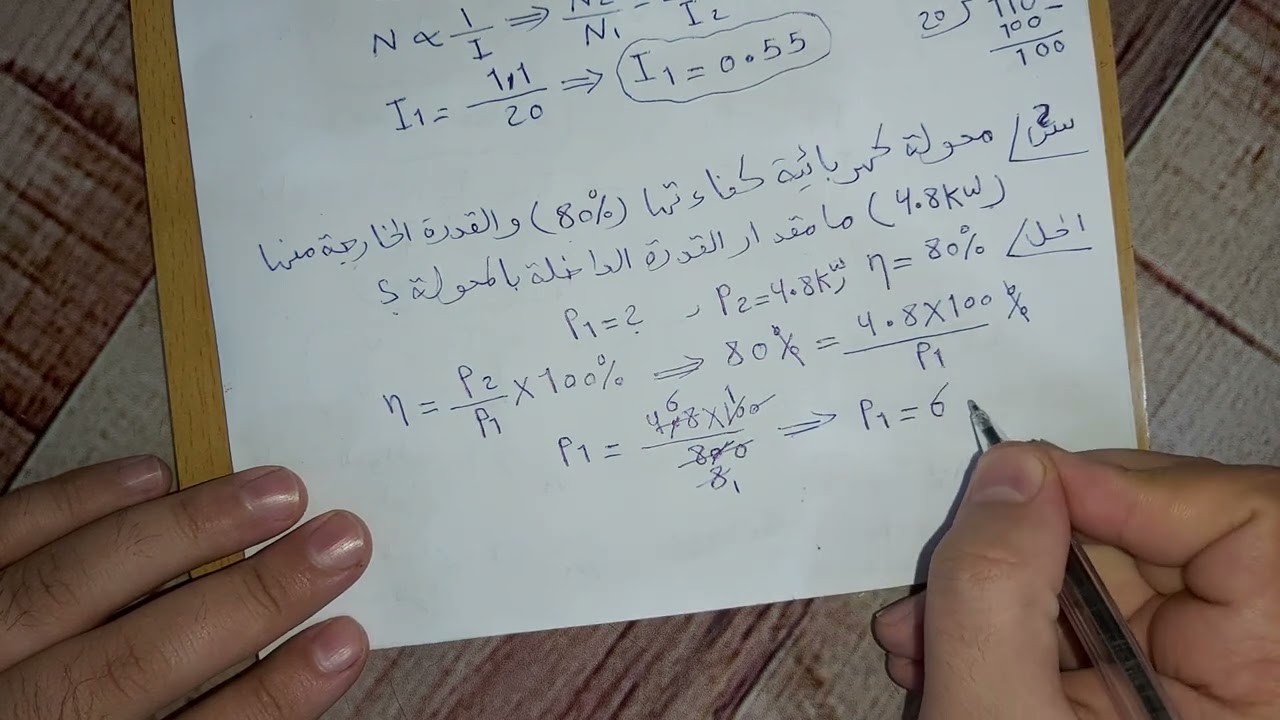 N ∝ 1/I ⇒ N2/N1 = /I2
I1 = 1,1/20 ⇒ I1 = 0.55
20 110
100
100
س2/ محولة كهربائية كفاءتها (80%) والقدرة الخارجة منها
(4.8kW) ما مقدار القدرة الداخلة بالمحولة ؟
الحل/ η = 80%
P1 = ? , P2 = 4.8kW
η = P2/P1 × 100% ⇒ 80% = 4.8×100/P1 %
P1 = 4.8×100/80 ⇒ P1 = 6